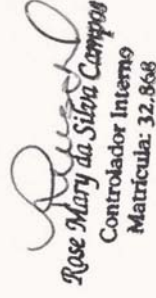 Rose Mary da Silva Campos
Controlador Interno
Matrícula: 32.868